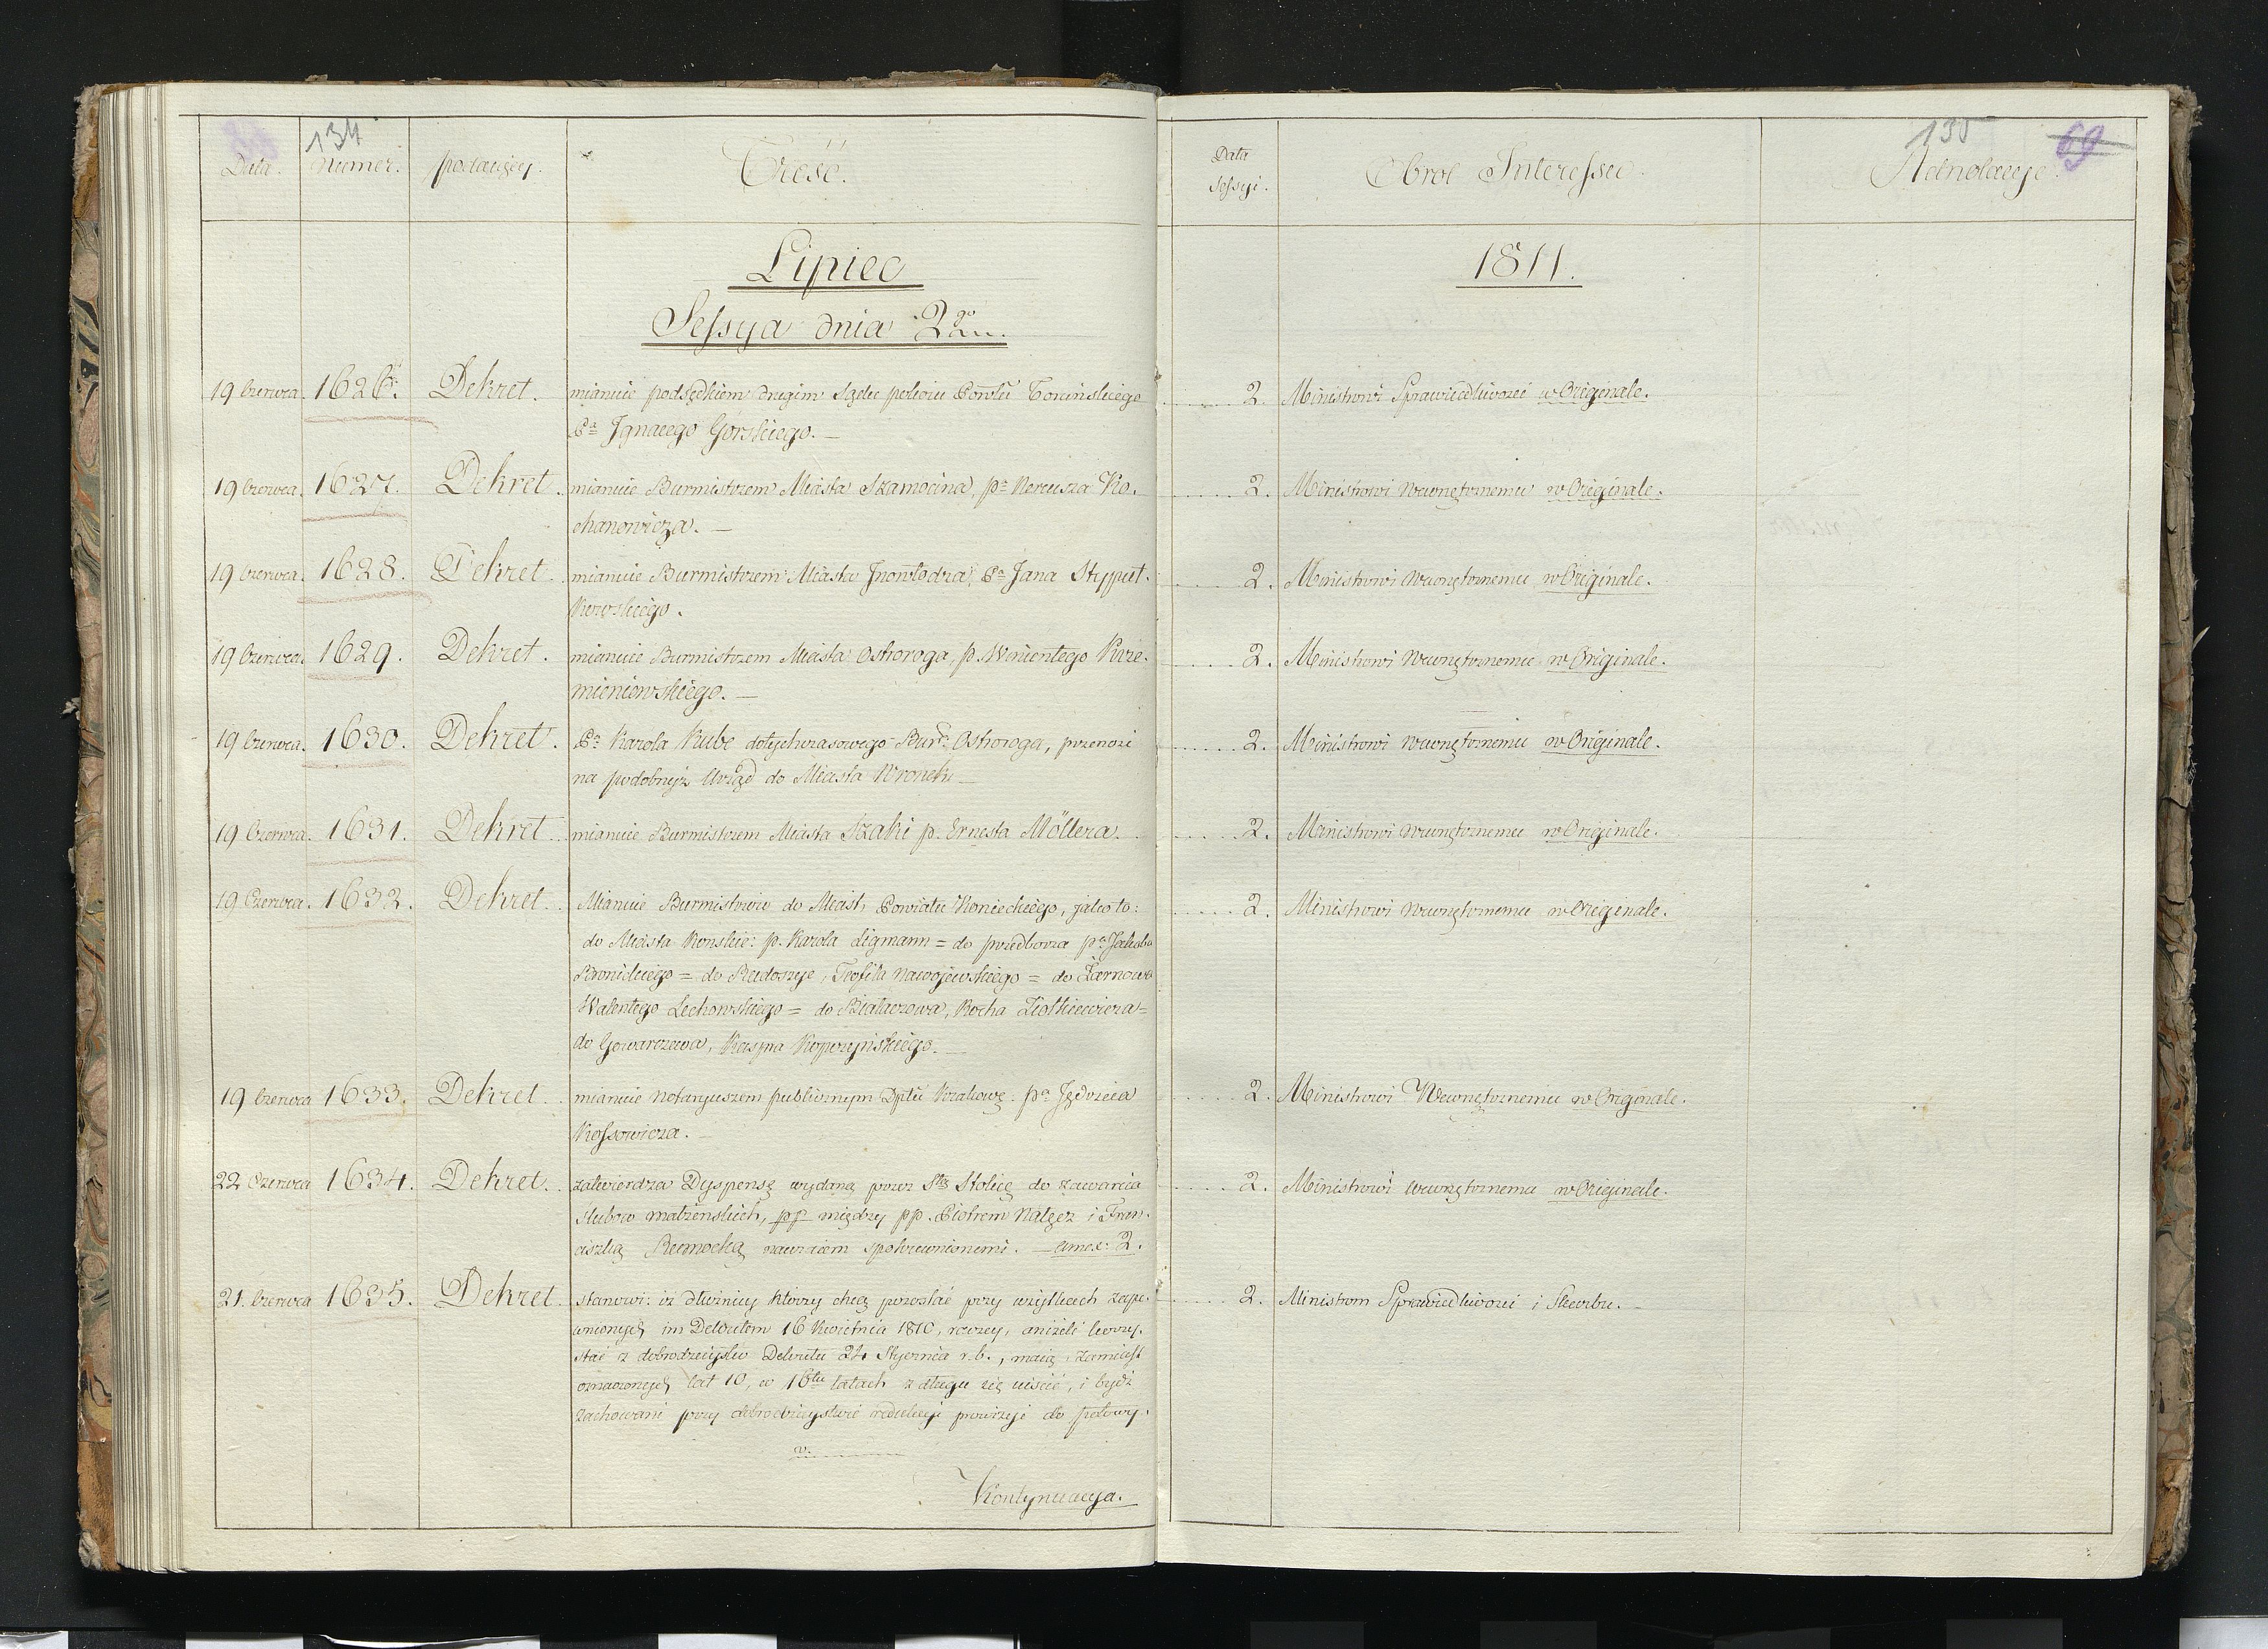 134
Data. Numer. podaiący. Treść.
Lipiec
Sessya dnia 2go
19 Czerwca. 1626. Dekret. mianuie podsędkiem drugim Sądu policiu Powtu Toruńskiego
Pa Jgnacego Gorskiego. —
19 Czerwca. 1627. Dekret. mianuie Burmistrzem Miasta Szamocina, pa Nereusza Ko.
chanowicza. —
19 Czerwca. 1628. Dekret. mianuie Burmistrzem Miasta Jnowłodza, Pa Jana Stypuł.
kowskiego.
19 Czerwca. 1629. Dekret. mianuie Burmistrzem Miasta Ostroroga, p. Wincentego Krze.
mieniewskiego. —
19 Czerwca. 1630. Dekret. Pa Karola Kube dotychczasowego Burm. Ostroroga, przenosi
na podobnyż Urząd do Miasta Wronek —
19 Czerwca. 1631. Dekret mianuie Burmistrzem Miasta Szaki p. Ernesta Möllera.
19 Czerwca. 1632. Dekret Mianuie Burmistrzów do Miast, Powiatu Konieckiego, jako to:
do Miasta Konskie: p. Karola Ligmann = do przedborza pa Jakoba
Bronickiego = do Radoszye, Teofila Nawojewskiego = do Żarnowa
Walentego Lechowskiego = do Białaczowa, Rocha Ziołkiewicza =
do Gowarczewa, Kaspra Kopczyńskiego. —
19 Czerwca 1633. Dekret mianuie Notaryuszem publicznym Dptu Krakows: pa Jędrzeia
Kossowicza. —
22 Czerwca 1634. Dekret zatwierdza Dyspensę wydaną przez Stą Stolicę do zawarcia
slubow małżenskich, pp między pp. Piotrem Nałęcz i Fran.
ciszką Remocką nawzaiem spokrewnionemi. — annex: 2.
21. Czerwca 1635. Dekret stanowi: iż dłużnicy ktorzy chcą pozostać przy użytkach zape.
wnionych im Dekretem 16 Kwietnia 1810, raczey, aniżeli korzy.
stać z dobrodzieystw Dekretu 24 Stycznia r.b., maią, zamiast
oznaczonych lat 10, w 16tu latach z długu się uiścić, i bydź
zachowani przy dobrodzieystwie redukcyi prowizyi do połowy.
Kontynuacya.
135
69
Data Sessyi. Obrot Interessu. Adnotacye.
1811.
2. Ministrowi Sprawiedliwości w Originale.
2. Ministrowi Wewnętrznemu w Originale.
2. Ministrowi Wewnętrznemu w Originale.
2. Ministrowi Wewnętrznemu w Originale.
2. Ministrowi wewnętrznemu w Originale.
2. Ministrowi wewnętrznemu w Originale.
2. Ministrowi Wewnętrznemu w Originale.
2. Ministrowi Wewnętrznemu w Originale.
2. Ministrowi wewnętrznemu w Originale.
2. Ministrom Sprawiedliwości i Skarbu. —